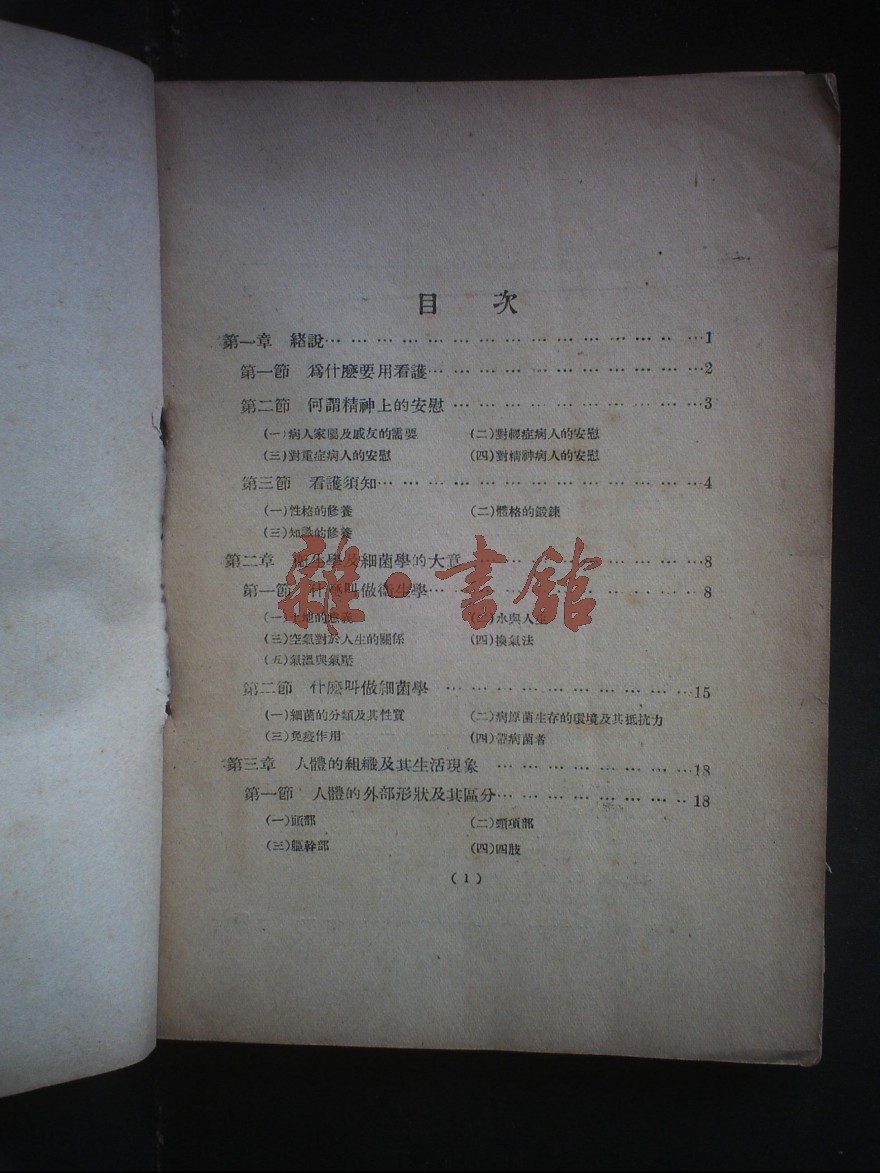 目 次
第一章 緒說………………………………………1
第一節 爲什麼要用看護………………………………2
第二節 何謂精神上的安慰………………………………3
(一)病人家屬及戚友的需要 (二)對輕症病人的安慰
(三)對重症病人的安慰 (四)對精神病人的安慰
第三節 看護須知………………………………………4
(一)性格的修養 (二)體格的鍛鍊
(三)知識的修養
第二章 衞生學及細菌學的大意………………………………8
第一節 什麼叫做衞生學………………………………8
(一)土地的意義 (二)水與人生
(三)空氣對於人生的關係 (四)換氣法
(五)氣溫與氣壓
第二節 什麼叫做細菌學………………………………15
(一)細菌的分類及其性質 (二)病原菌生存的環境及其抵抗力
(三)免疫作用 (四)帶病菌者
第三章 人體的組織及其生活現象………………………18
第一節 人體的外部形狀及其區分………………………18
(一)頭部 (二)頸項部
(三)軀幹部 (四)四肢
(1)
雜·書館